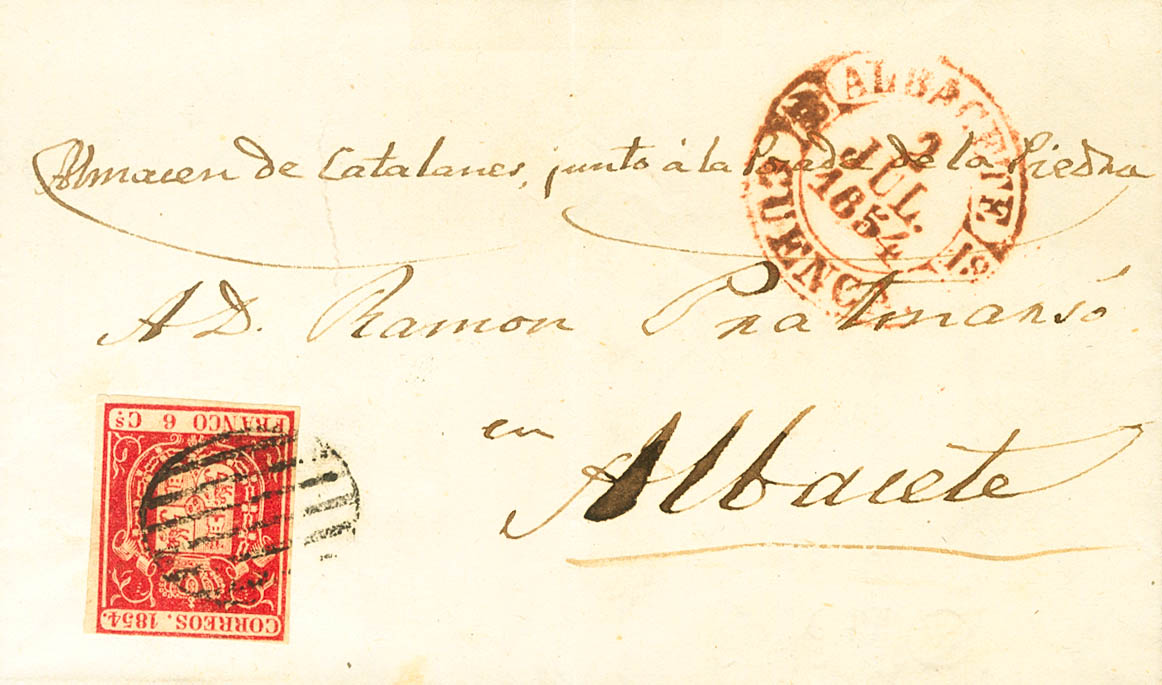 ALBACETE 1º
2
JUL.
1854
CUENCA
Almacen de Catalanes, junto á la Posada de la Piedra
A D. Ramon Pratmarsó
en
Albacete
CORREOS. 1854.
FRANCO 6 Cs